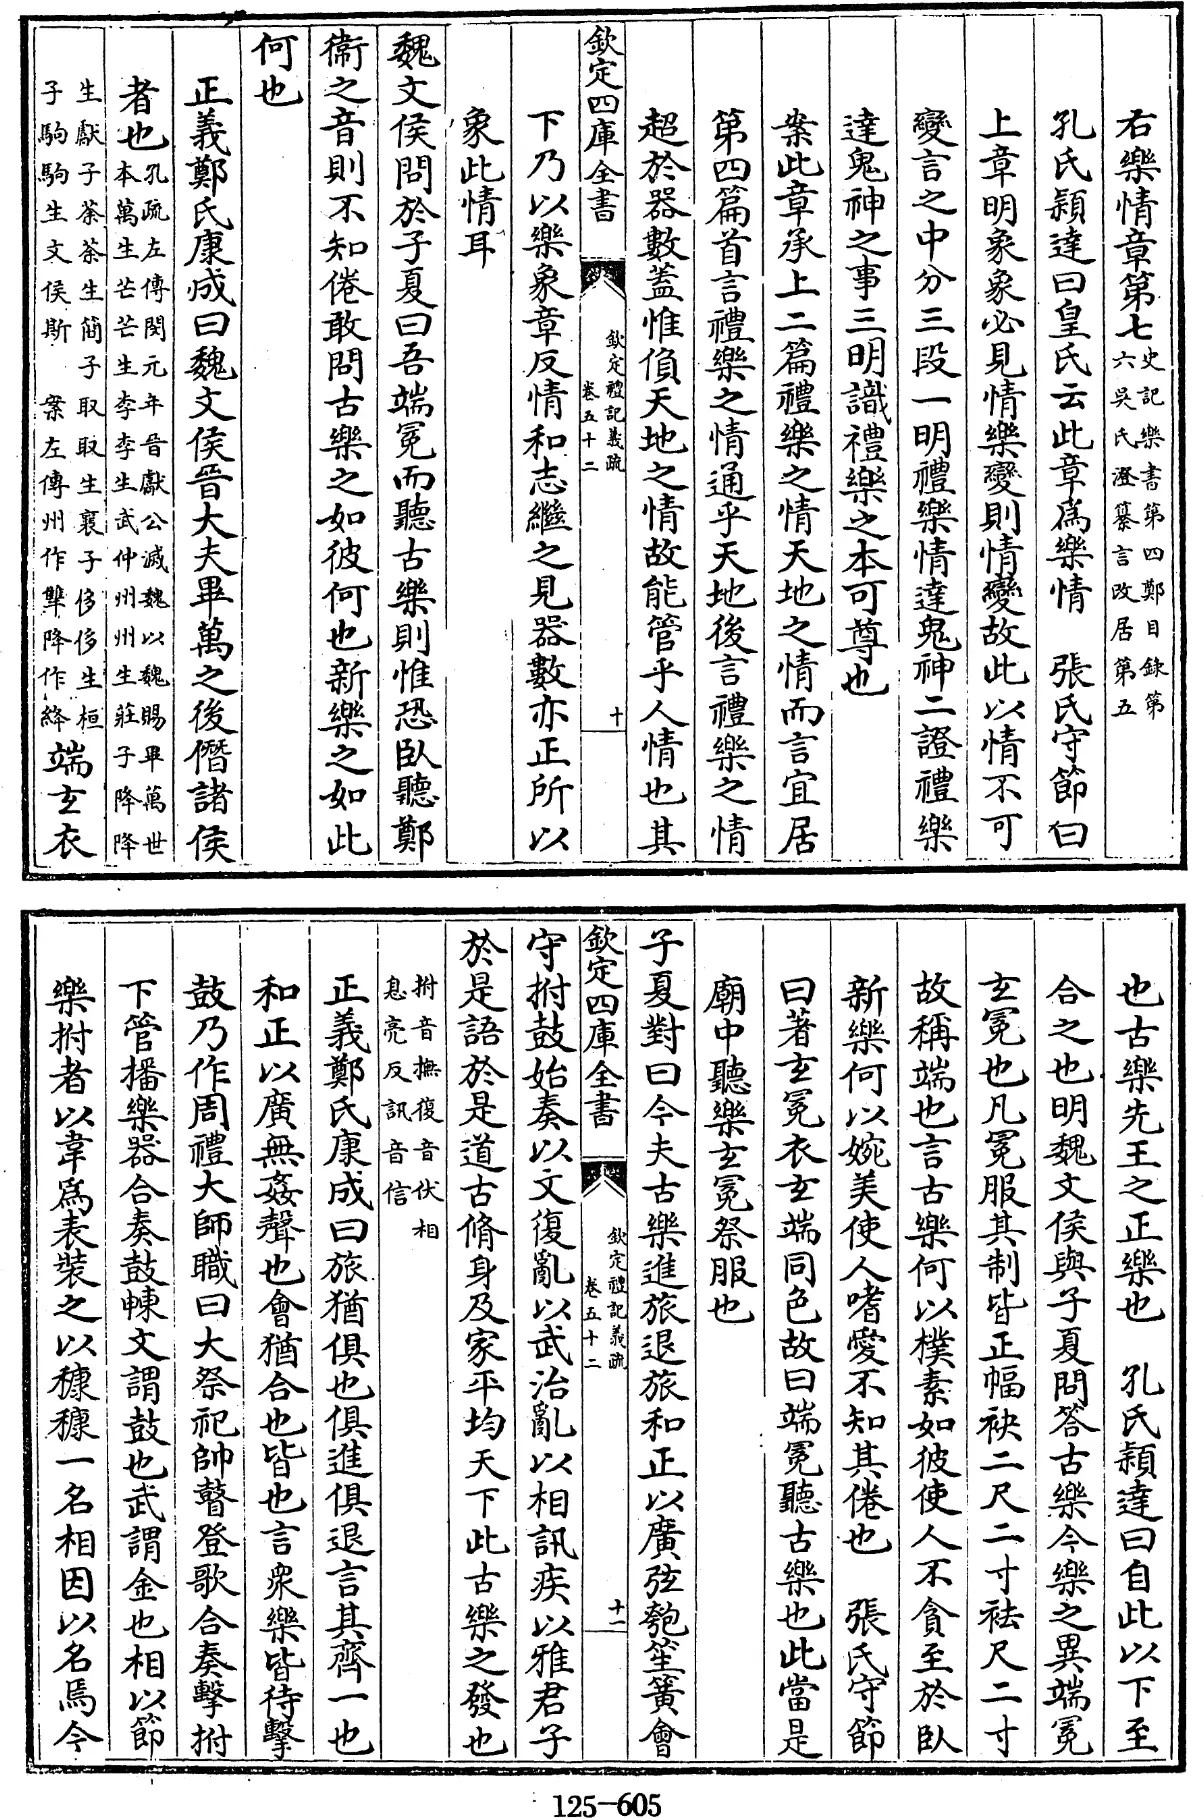 右樂情章第七史記樂書第四鄭目錄第六吳氏澄纂言改居第五
孔氏穎達曰皇氏云此章爲樂情　張氏守節曰
上章明象象必見情樂變則情變故此以情不可
變言之中分三段一明禮樂情達鬼神二證禮樂
達鬼神之事三明識禮樂之本可尊也
案此章承上二篇禮樂之情天地之情而言宜居
第四篇首言禮樂之情通乎天地後言禮樂之情
超於器數蓋惟偩天地之情故能管乎人情也其
欽定四庫全書　欽定禮記義疏　卷五十二　十
下乃以樂象章反情和志繼之見器數亦正所以
象此情耳
魏文侯問於子夏曰吾端冕而聽古樂則惟恐臥聽鄭
衞之音則不知倦敢問古樂之如彼何也新樂之如此
何也
正義鄭氏康成曰魏文侯晉大夫畢萬之後僭諸侯
者也孔疏左傳閔元年晉獻公滅魏以魏賜畢萬世本萬生芒芒生季季生武仲州州生莊子降降
生獻子荼荼生簡子取取生襄子侈侈生桓子駒駒生文侯斯　案左傳州作犨降作絳端玄衣
也古樂先王之正樂也　孔氏穎達曰自此以下至
合之也明魏文侯與子夏問答古樂今樂之異端冕
玄冕也凡冕服其制皆正幅袂二尺二寸袪尺二寸
故稱端也言古樂何以樸素如彼使人不貪至於臥
新樂何以婉美使人嗜愛不知其倦也　張氏守節
曰著玄冕衣玄端同色故曰端冕聽古樂也此當是
廟中聽樂玄冕祭服也
子夏對曰今夫古樂進旅退旅和正以廣弦匏笙簧會
欽定四庫全書　欽定禮記義疏　卷五十二　十一
守拊鼓始奏以文復亂以武治亂以相訊疾以雅君子
於是語於是道古脩身及家平均天下此古樂之發也
拊音撫復音伏相息亮反訊音信
正義鄭氏康成曰旅猶俱也俱進俱退言其齊一也
和正以廣無姦聲也會猶合也皆也言衆樂皆待擊
鼓乃作周禮大師職曰大祭祀帥瞽登歌合奏擊拊
下管播樂器合奏鼓朄文謂鼓也武謂金也相以節
樂拊者以韋爲表裝之以穅穅一名相因以名焉今
125-605